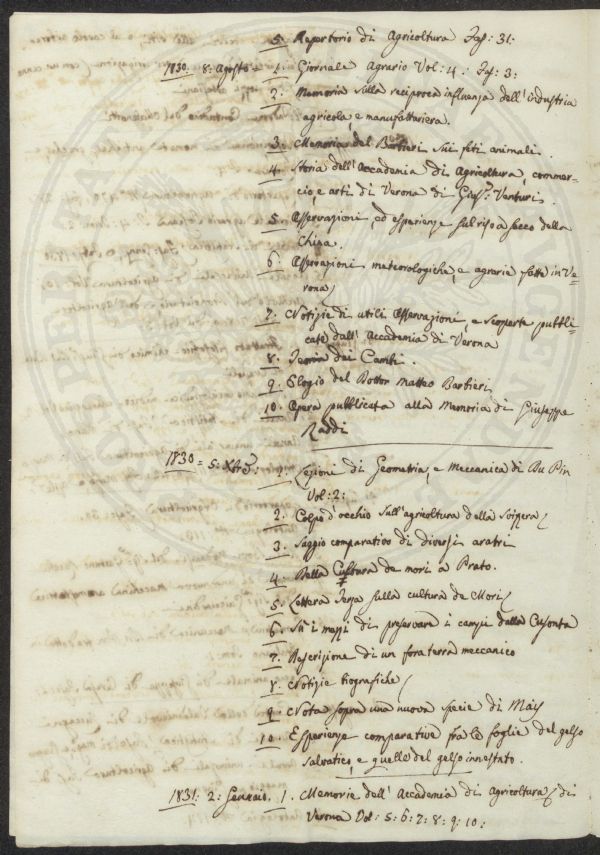 5. Repertorio di Agricoltura Fas: 31:
1830. 8: Agosto = 1. Giornale Agrario Vol: 4: Fas: 3:
2. Memoria sulla reciproca influenza dell'industria
agricola, e manufatturiera.
3. Memoria del Barbieri sui feti animali.
4. Storia dell'Accademia di Agricoltura, commer-
cio, e arti di Verona di Gius: Venturi.
5. Osservazioni, ed esperienze sul riso a secco della
China.
6. Osservazioni meteorologiche, e agrarie fatte in Ve=
rona
7. Notizie di utili Osservazioni, e scoperte pubbli-
cate dall'Accademia di Verona
8. Teoria dei Cambi.
9. Elogio del Dottor Matteo Barbieri
10. Opera pubblicata alla Memoria di Giuseppe
Raddi
1830 = 5: Xbre: 1. Lezioni di Geometria, e Meccanica di Du Pin
Vol: 2:
2. Colpo d'occhio sull'agricoltura della Svizzera
3. Saggio comparativo di diversi aratri
4. Della Cultura de mori a Prato.
5. Lettera Terza sulla cultura de Mori
6. Su i mezzi di preservare i campi dalla
7. Descrizione di un fora terra meccanico
8. Notizie biografiche
9. Nota sopra una nuova specie di Mays
10. Esperienze comparative fra le foglie del gelso
salvatico, e quelle del gelso innestato.
1831. 2: Gennaio. 1. Memorie dell'Accademia di Agricoltura di
Verona Vol: 5: 6: 7: 8: 9: 10: